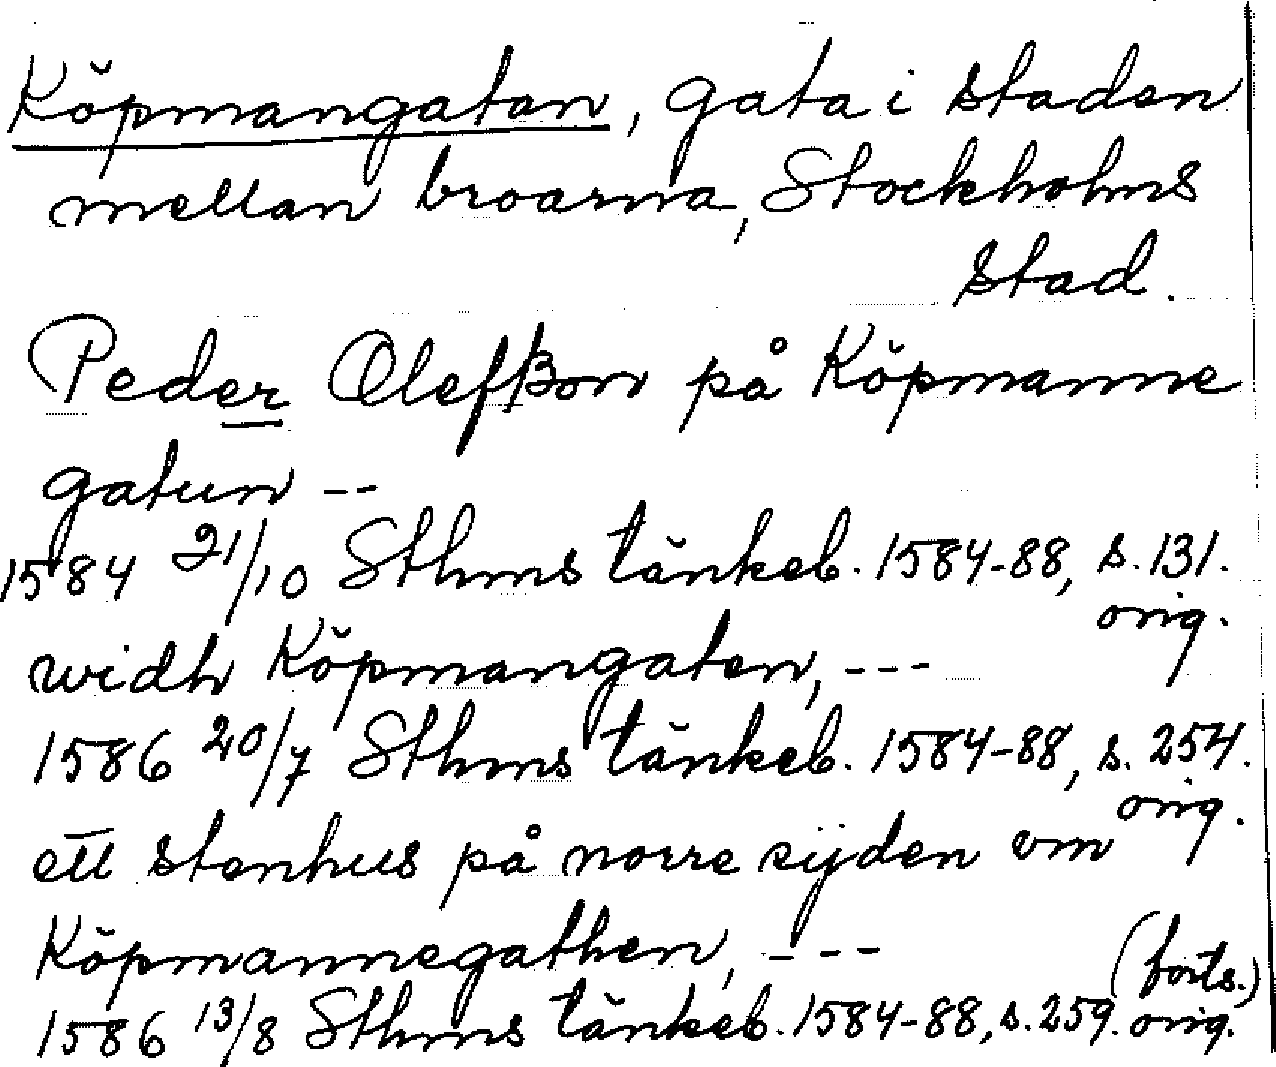 Köpmangatan, gata i staden
mellan broarna, Stockholms
stad.
Peder Olefßon på Köpmanne
gatun --
1584 21/10 Sthms tänkeb. 1584-88, s. 131.
orig.
widh Köpmangaten, ---
1586 20/7 Sthms tänkeb. 1584-88, s. 254.
orig.
ett stenhus på norre sijden om
Köpmannegathen, ---
(forts.)
1586 13/8 Sthms tänkeb. 1584-88, s. 259. orig.